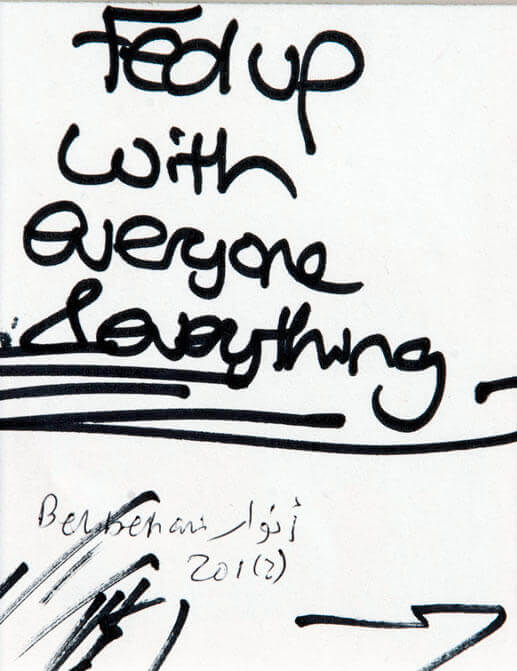 Fed up
with
everyone
& everything
Behbehani أنوار
201(2)